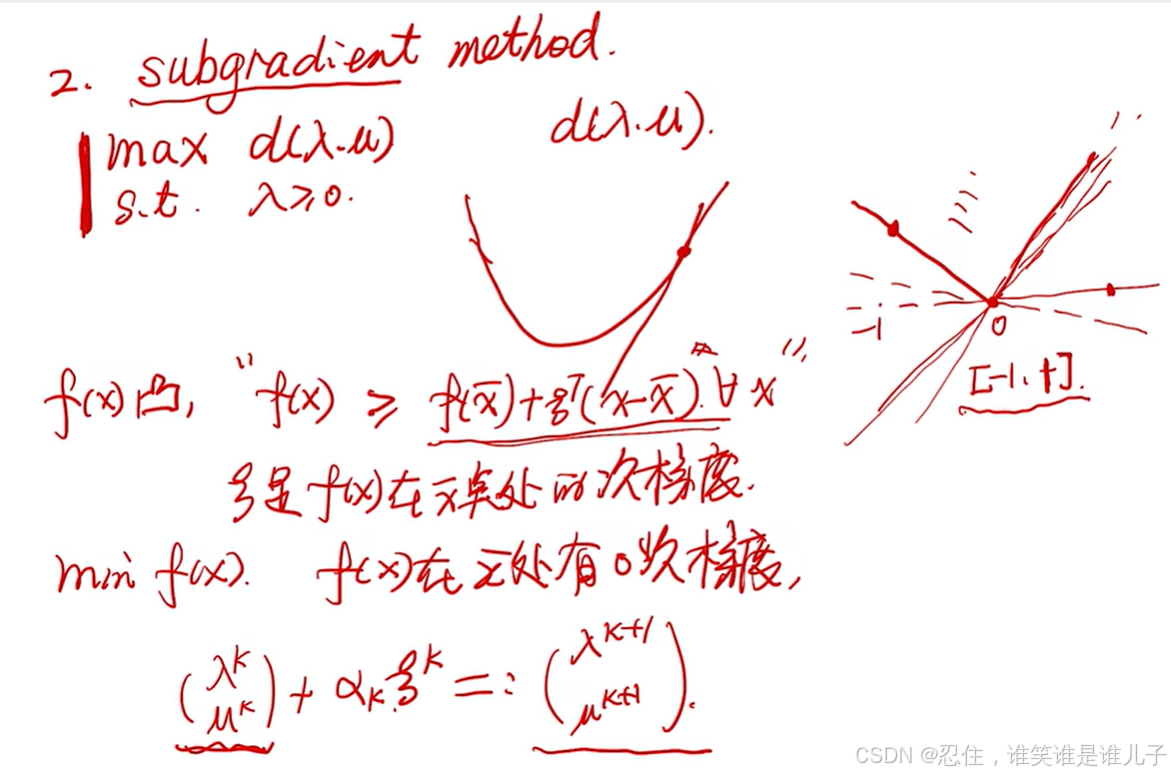 2. subgradient method.
max d(λ.μ)
s.t. λ≥0.
d(λ.μ).
-1
0
[-1.+].
f(x)凸, "f(x) ≥ f(x̄)+ξᵀ(x-x̄). ∀ x"
ξ是f(x)在x̄点处的次梯度.
min f(x). f(x)在x̄处有0次梯度,
(λᵏ μᵏ) + αₖ ξᵏ =: (λᵏ⁺¹ μᵏ⁺¹).
CSDN @忍住，谁笑谁是谁儿子